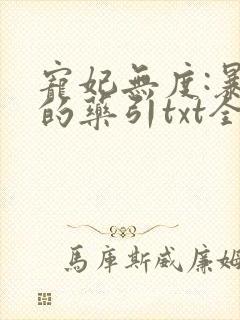 寵妃無度:暴
的藥引txt全
馬庫斯威廉姆